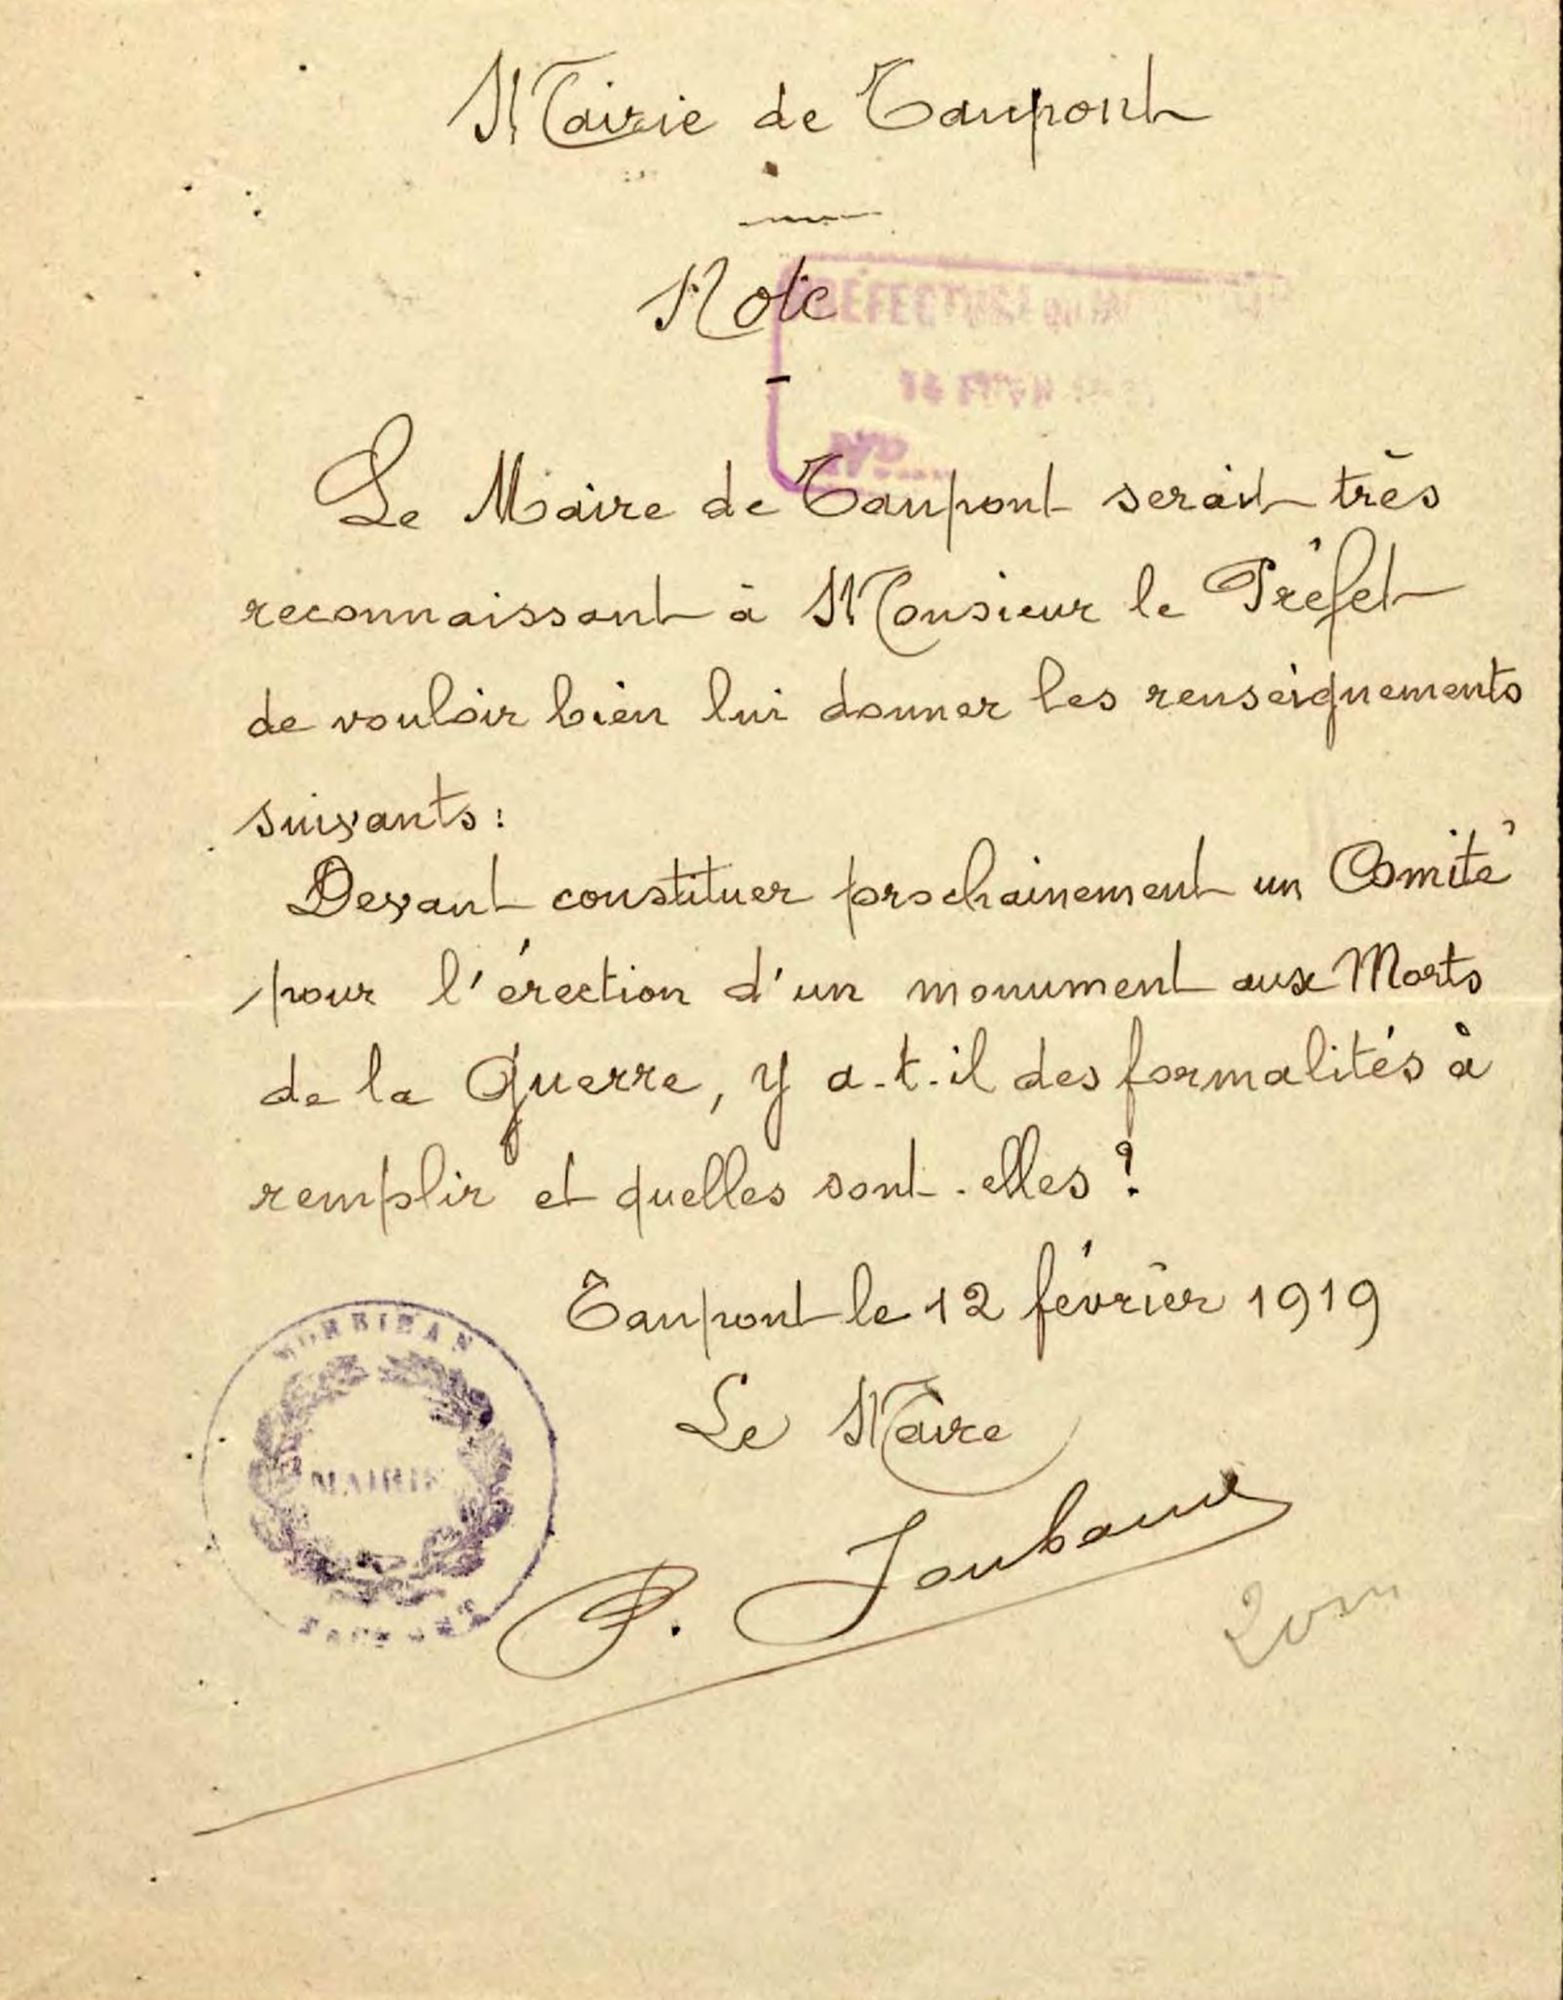 Mairie de Taupont
Note
PRÉFECTURE DU
14
N°
Le Maire de Taupont serait très
reconnaissant à Monsieur le Préfet
de vouloir bien lui donner les renseignements
suivants :
Devant constituer prochainement un Comité
pour l'érection d'un monument aux Morts
de la Guerre, y a-t-il des formalités à
remplir et quelles sont-elles ?
Taupont le 12 février 1919
Le Maire
MORBIHAN
MAIRIE
TAUPONT
P. Joubaud